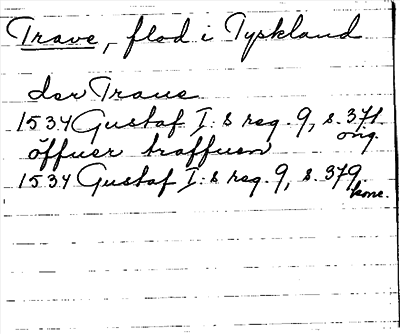 Trave, flod i Tyskland
der Traue
1534 Gustaf I:s reg. 9, s. 371.
orig.
öffuer traffuen
1534 Gustaf I:s reg. 9, s. 379.
konc.